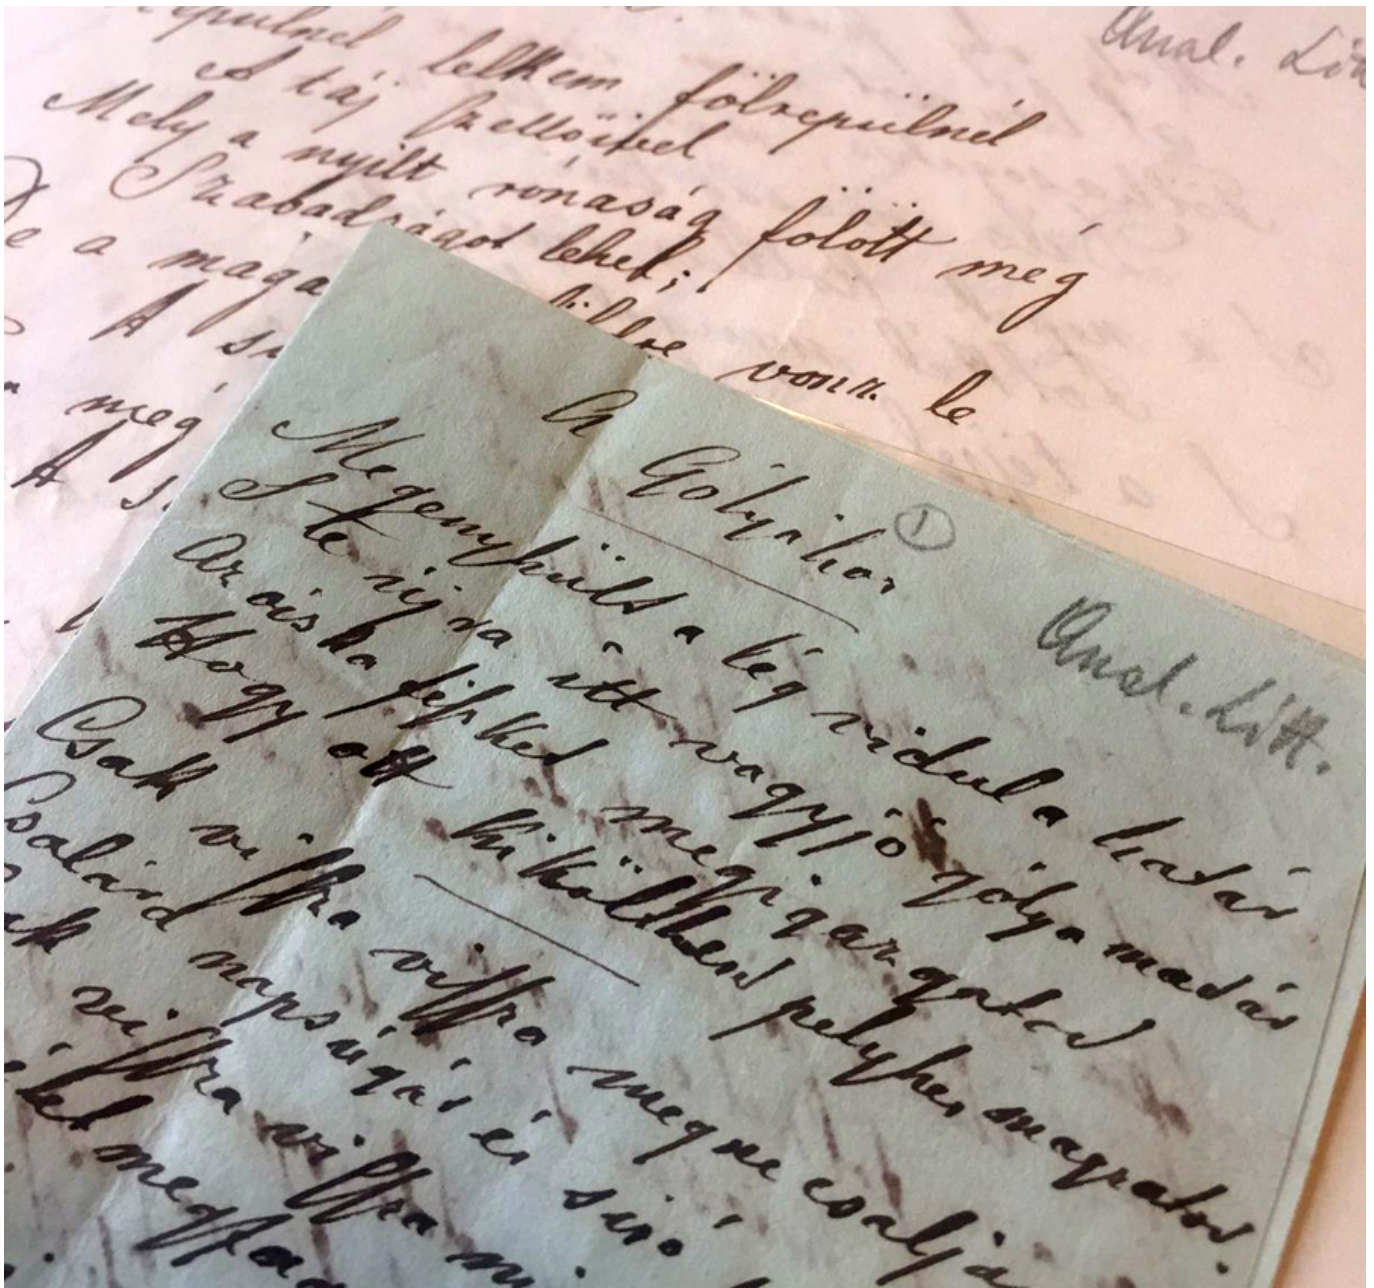 Anal. Litt
lelkem fölrepülnél
A táj szellőivel
Mely a nyilt rónaság fölött még
Szabadságot lehel;
De a maga vonz le
meg
A
A Gólyához
1
Anal. Litt.
Megenyhült a lég vidul a határ
S te ujra itt vagy jó gólya madár
Az ócska fészket megigazgatod
Hogy ott kiköltsed pelyhes magzatod.
Csak vissza vissza meg ne csalja
Csalárd napsugár és siró
vissza vissza